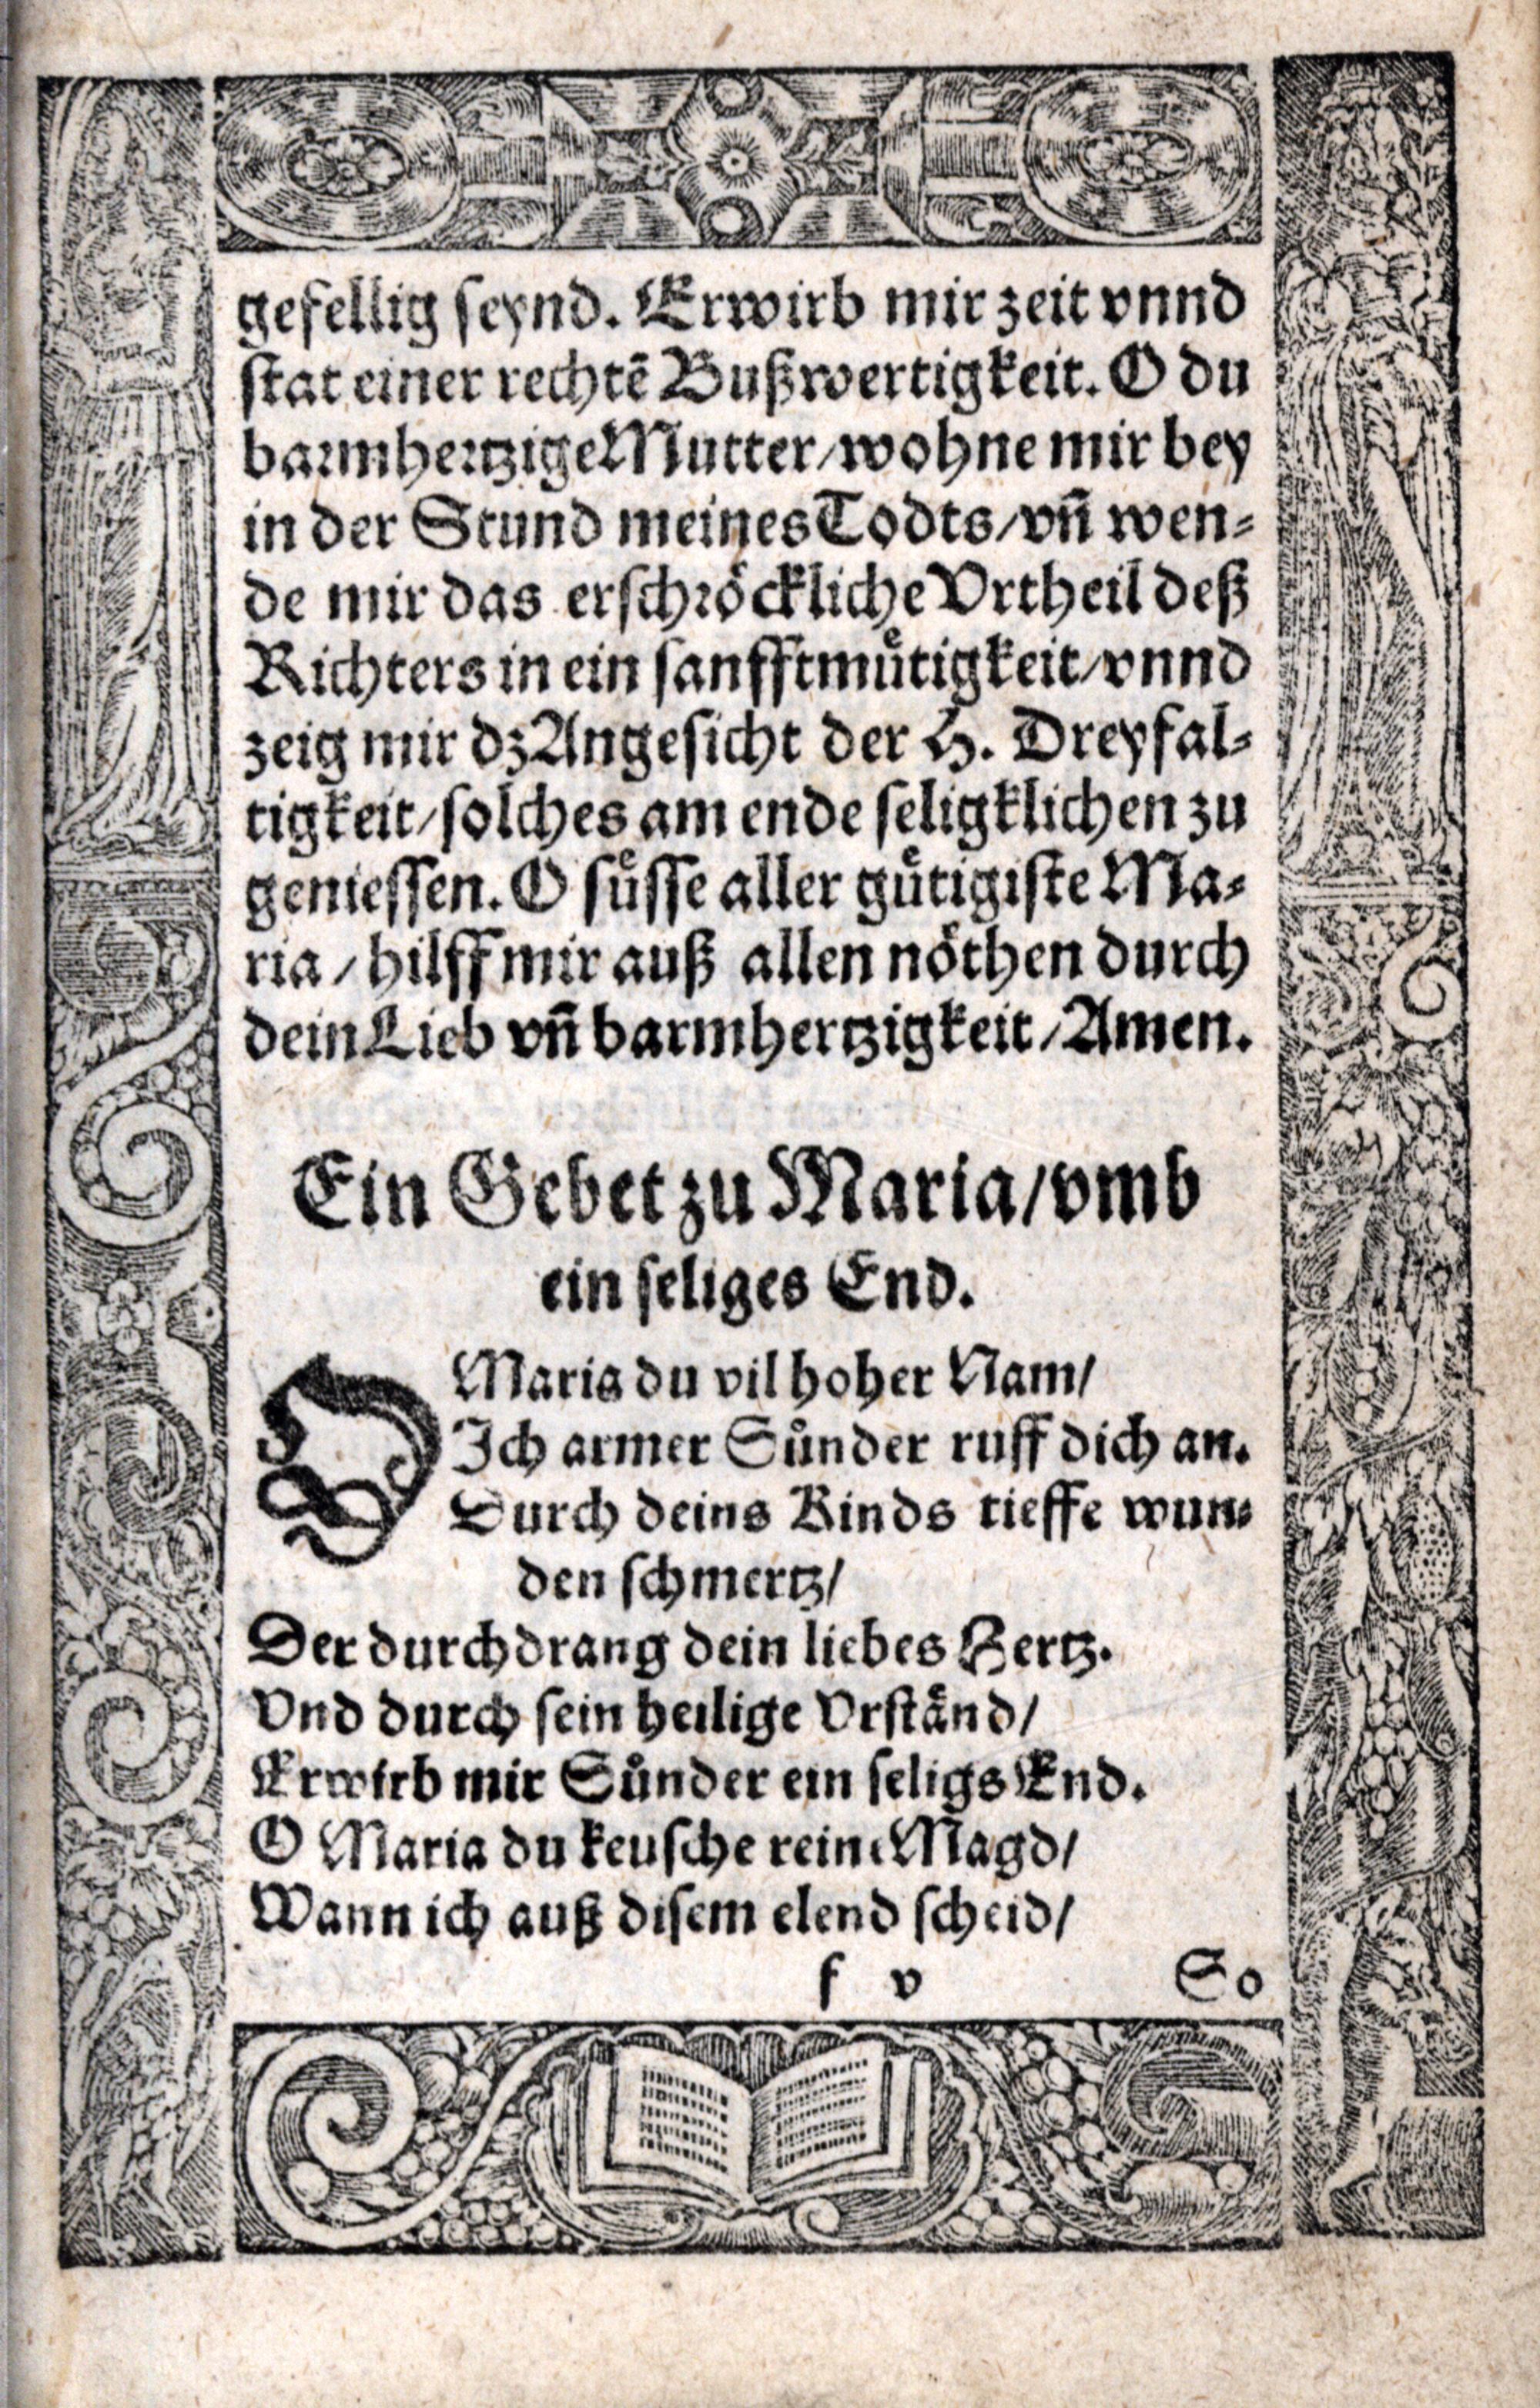 gefellig seynd. Erwirb mir zeit vnnd
stat einer rechtē Bußwertigkeit. O du
barmhertzige Mutter/wohne mir bey
in der Stund meines Todts/vñ wen-
de mir das erschröckliche Vrtheil deß
Richters in ein sanfftmuͤtigkeit/vnnd
zeig mir dz Angesicht der H. Dreyfal-
tigkeit/solches am ende seligklichen zu
geniessen. O suͤsse aller guͤtigiste Ma-
ria/hilff mir auß allen noͤthen durch
dein Lieb vñ barmhertzigkeit/Amen.
Ein Gebet zu Maria/vmb
ein seliges End.
O Maria du vil hoher Nam/
Ich armer Suͤnder ruff dich an.
Durch deins Kinds tieffe wun-
den schmertz/
Der durchdrang dein liebes Hertz.
Vnd durch sein heilige Vrstaͤnd/
Erwirb mir Suͤnder ein seligs End.
O Maria du keusche reine Magd/
Wann ich auß disem elend scheid/
f v So